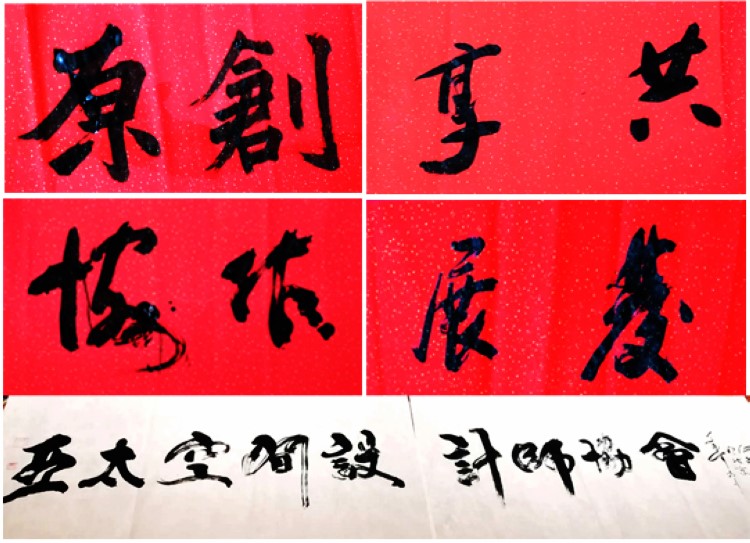 原創
共享
協作
發展
亞太空間設計師協會